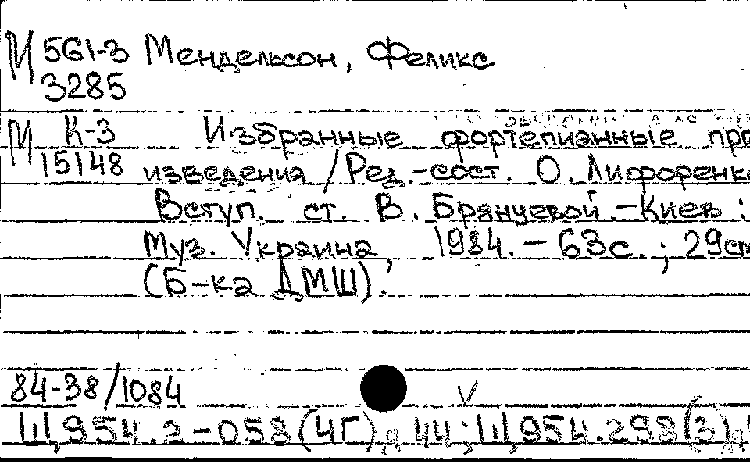 М 561-3 Мендельсон, Феликс
3285
М К-3 Избранные фортепианные про
15148 изведения / Ред.-сост. О. Лифоренко
Вступ. ст. В. Брянцевой. - Киев :
Муз. Украина, 1984. - 63с. ; 29см
(Б-ка ДМШ).
84-38/1084
Щ954.2-058(4Г)я 44; Щ954.298(3)я